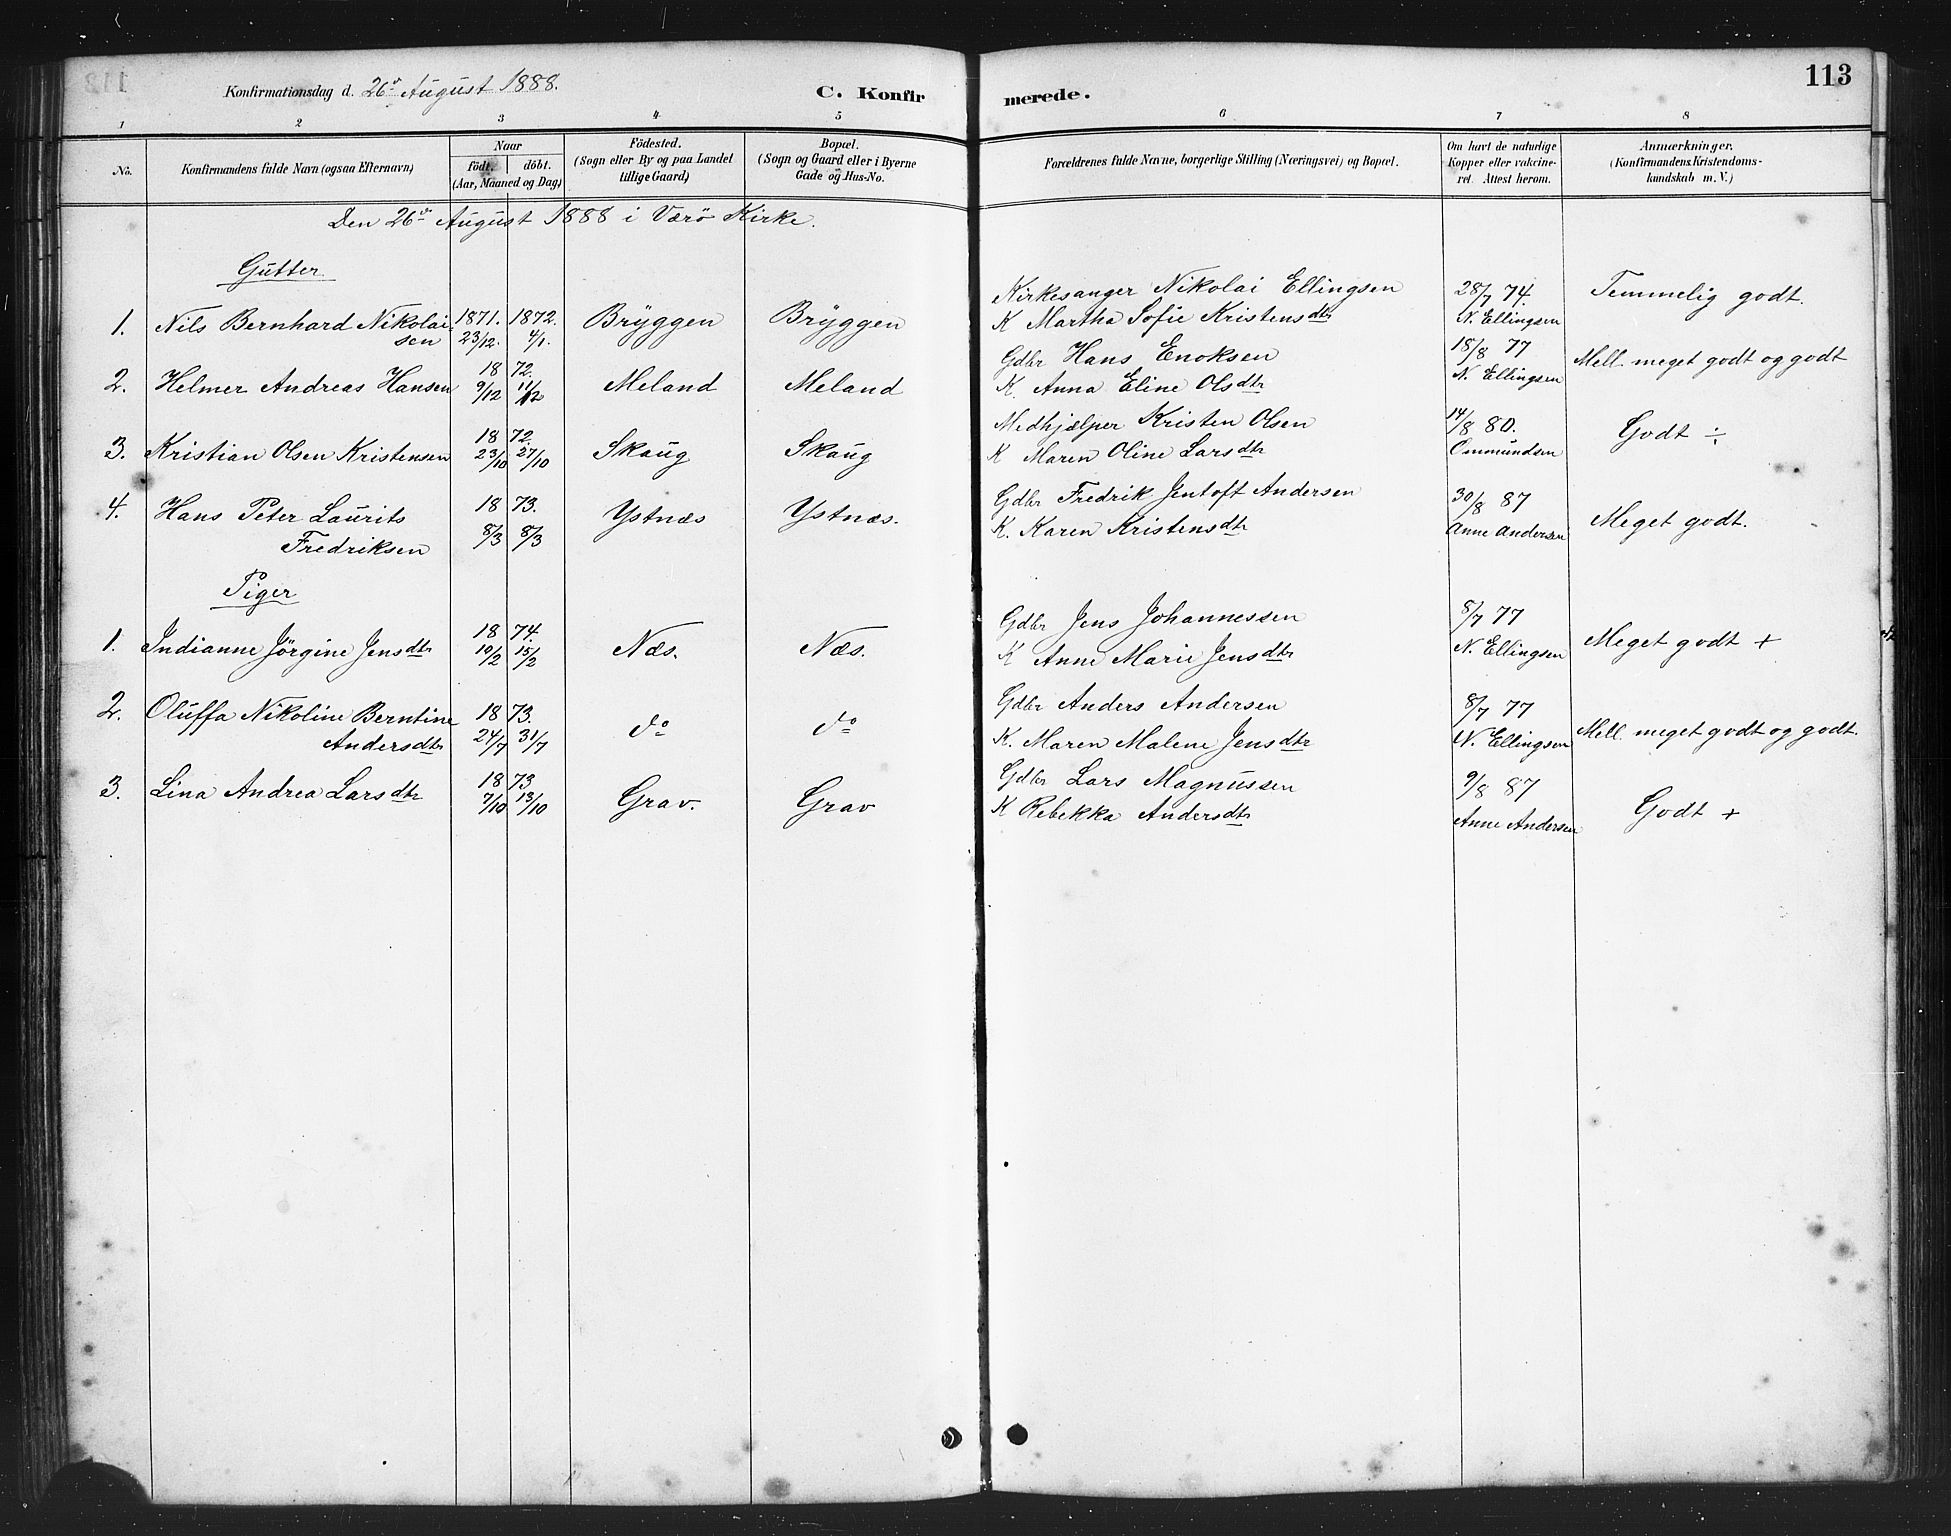 Konfirmationsdag d. 26de August 1888.
C. Konfirmerede.
113
1 2 3 4 5 6 7 8
No. Konfirmandens fulde Navn (ogsaa Efternavn)
Naar
født. døbt.
(Aar, Maaned og Dag)
Födested.
(Sogn eller By og paa Landet
tillige Gaard)
Bopæl.
(Sogn og Gaard eller i Byerne
Gade og Hus-No.
Forældrenes fulde Navne, borgerlige Stilling (Næringsvei) og Bopæl.
Om havt de naturlige
Kopper eller vakcine-
ret. Attest herom.
Anmærkninger.
(Konfirmandens Kristendoms-
kundskab m. V.)
Den 26de August 1888 i Værö Kirke.
Gutter
1. Nils Bernhard Nikolai- 1871. 1872. Bryggen Bryggen Kirkesanger Nikolai Ellingsen 28/7 74. Temmelig godt.
sen 23/12. 4/1. K Martha Sofie Kristensdtr N. Ellingsen
2. Helmer Andreas Hansen 18 72. Meland Meland Gdbr Hans Enoksen 18/8 77 Mell. meget godt og godt
9/12 11/12 K. Anna Eline Olsdtr N. Ellingsen
3. Kristian Olsen Kristensen 18 72. Skaug Skaug Medhjælper Kristen Olsen 14/8 80. Godt ÷
23/10 27/10 K Maren Oline Larsdtr Ommundsen
4. Hans Peter Laurits 18 73. Ystnæs Ystnæs. Gdbr Fredrik Jentoft Andersen 30/8 87 Meget godt.
Fredriksen 8/3 8/3 K. Karen Kristensdtr Anne Andersen
Piger
1. Indianne Jörgine Jensdtr 18 74. Næs. Næs. Gdbr Jens Johannessen 8/7 77 Meget godt +
10/2 15/2 K Anne Marie Jensdtr N. Ellingsen
2. Oluffa Nikoline Berntine 18 73. do do Gdbr Anders Andersen 8/7 77 Mell. meget godt og godt.
Andersdtr 24/7 31/7 K. Maren Malene Jensdtr N. Ellingsen
3. Lina Andrea Larsdtr 18 73. Grav. Grav Gdbr Lars Magnussen 9/8 87 Godt +
7/10 13/10 K Rebekka Andersdtr Anne Andersen